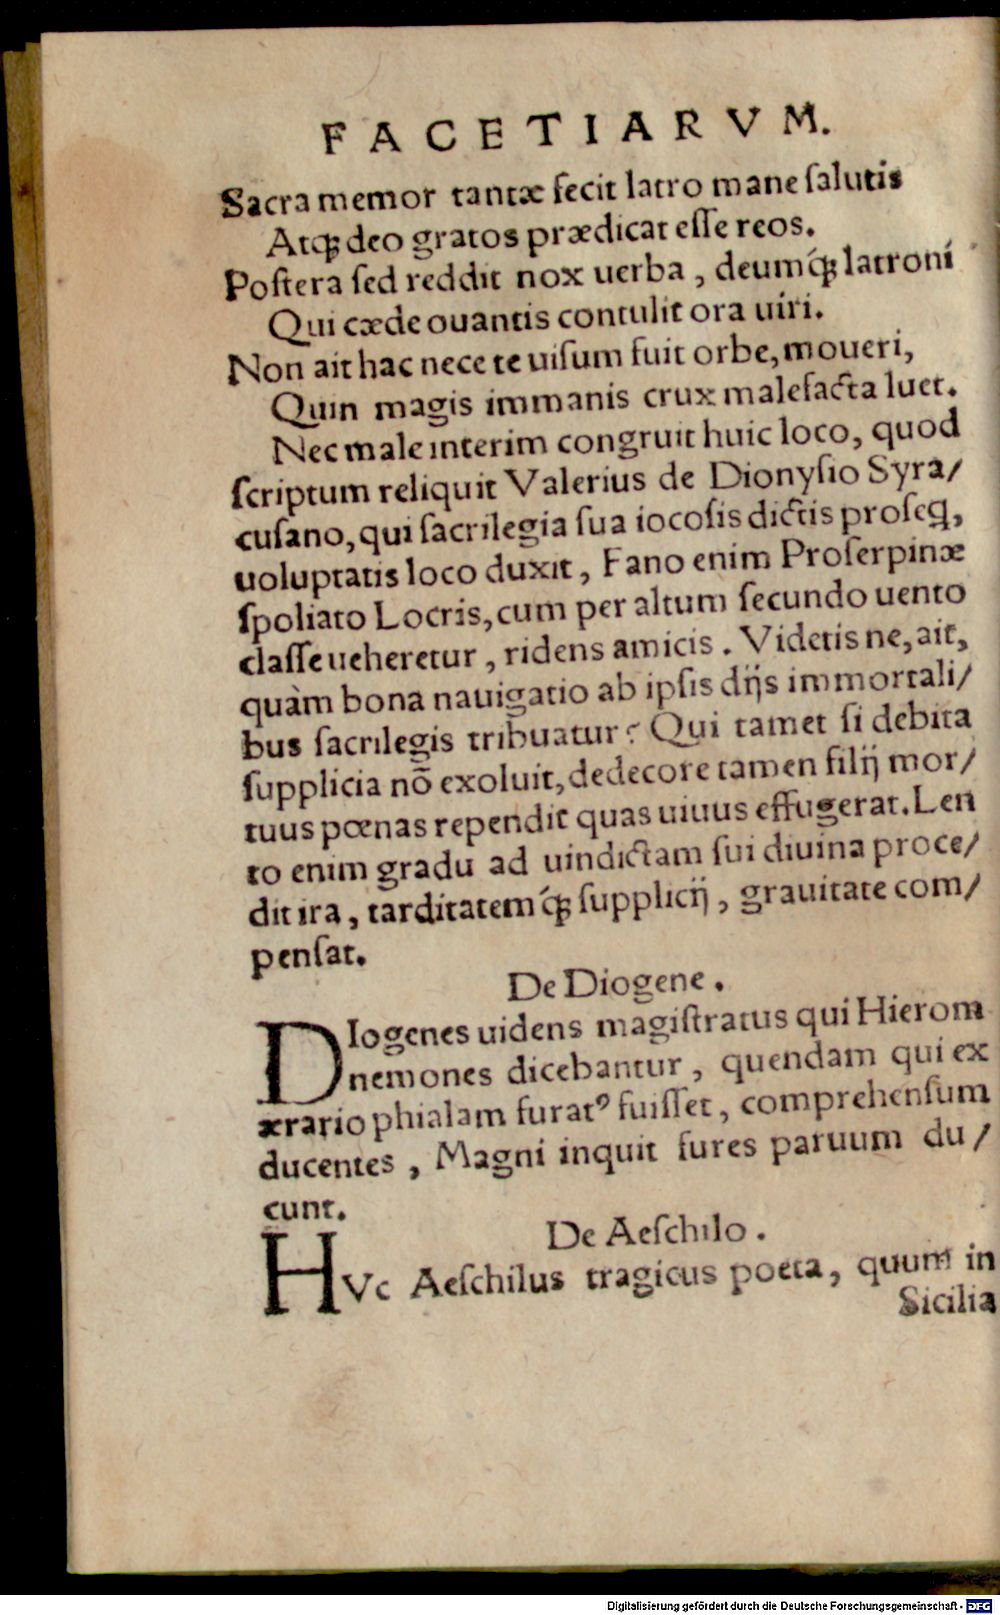 FACETIARVM.
Sacra memor tantæ fecit latro mane ſalutis
Atqꝫ deo gratos prædicat eſſe reos.
Poſtera ſed reddit nox uerba, deumq́ꝫ latroni
Qui cæde ouantis contulit ora uiri.
Non ait hac nece te uiſum fuit orbe, moueri,
Quin magis immanis crux malefacta luet.
Nec male interim congruit huic loco, quod
ſcriptum reliquit Valerius de Dionyſio Syra/
cuſano, qui ſacrilegia ſua iocoſis dictis proſeq̃,
uoluptatis loco duxit, Fano enim Proſerpinæ
ſpoliato Locris, cum per altum ſecundo uento
claſſe ueheretur, ridens amicis. Videtis ne, ait,
quàm bona nauigatio ab ipſis dijs immortali/
bus ſacrilegis tribuatur? Qui tamet ſi debita
ſupplicia nõ exoluit, dedecore tamen filij mor/
tuus pœnas rependit quas uiuus effugerat. Len
to enim gradu ad uindictam ſui diuina proce/
dit ira, tarditatemq́ꝫ ſupplicij, grauitate com/
penſat.
De Diogene.
DIogenes uidens magiſtratus qui Hierom
nemones dicebantur, quendam qui ex
ærario phialam furatꝰ fuiſſet, comprehenſum
ducentes, Magni inquit fures paruum du/
cunt.
De Aeſchilo.
HVc Aeſchilus tragicus poeta, quum in
Sicilia
Digitalisierung gefördert durch die Deutsche Forschungsgemeinschaft - DFG